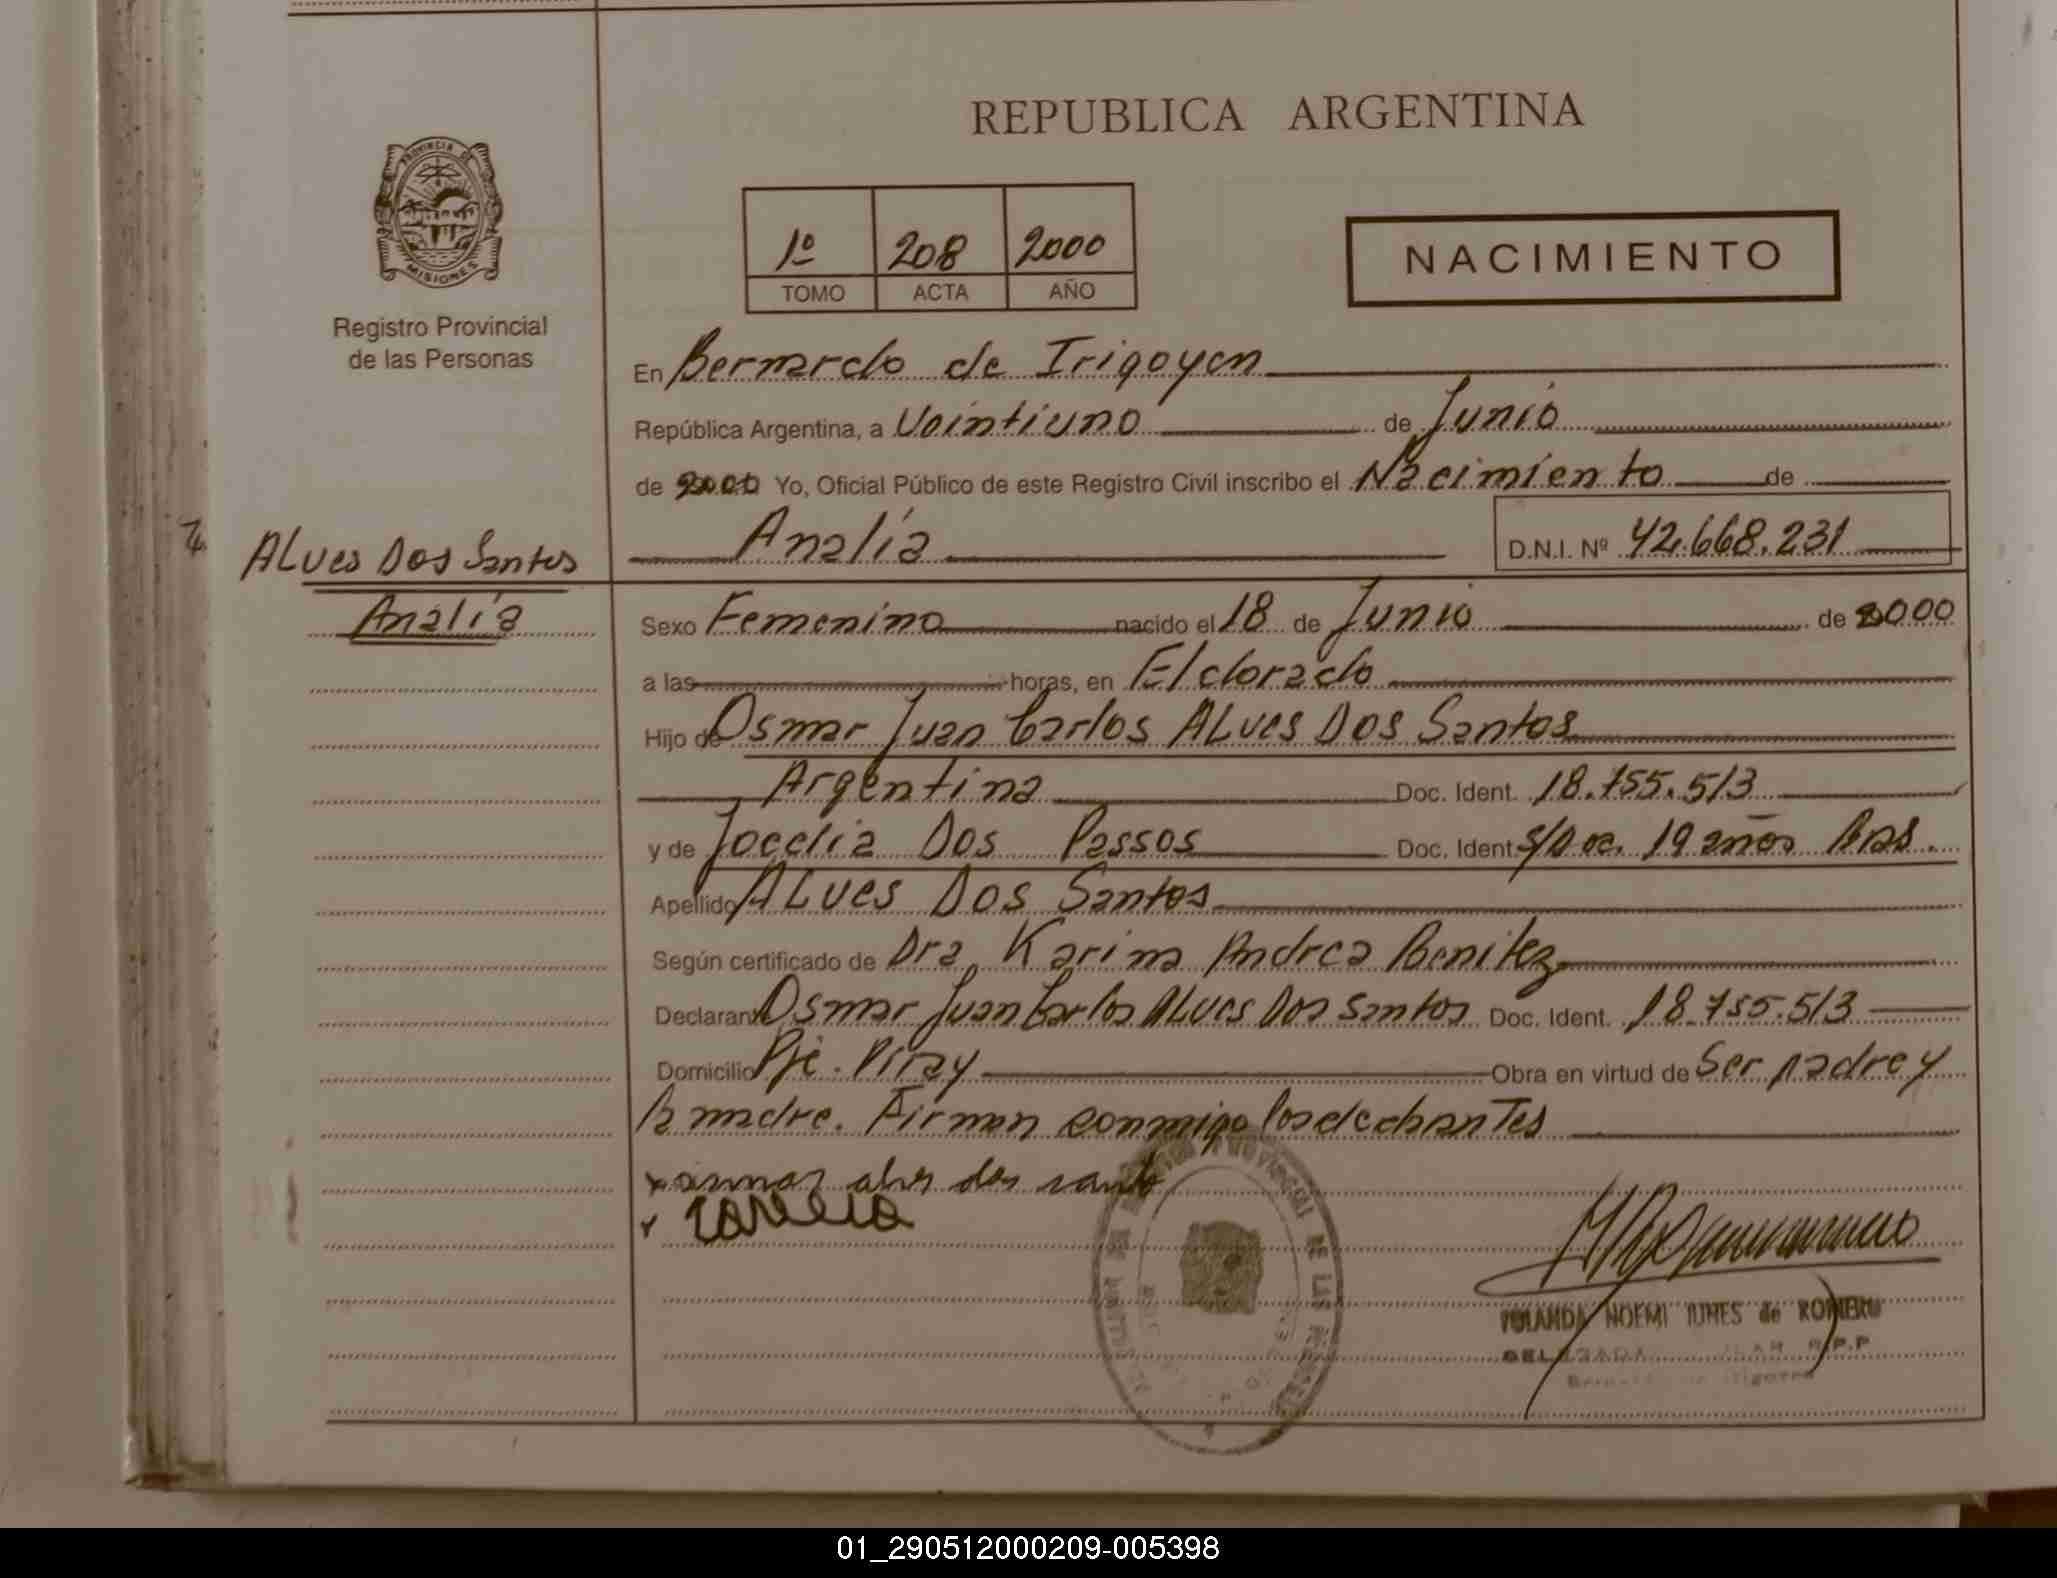 REPUBLICA ARGENTINA
PROVINCIA DE
MISIONES
Registro Provincial
de las Personas
1º 208 2000
TOMO ACTA AÑO
NACIMIENTO
En Bernardo de Irigoyen
República Argentina, a Veintiuno de Junio
de 2000 Yo, Oficial Público de este Registro Civil inscribo el Nacimiento de
Analía D.N.I. Nº 42.668.231
ALves Dos Santos
Analía
Sexo Femenino nacido el 18 de Junio de 2000
a las horas, en Eldorado
Hijo de Osmar Juan Carlos ALves Dos Santos
Argentina Doc. Ident. 18.755.513
y de Jocelia Dos Passos Doc. Ident. s/Doc. 19 años Bras.
Apellido ALves Dos Santos
Según certificado de Dra. Karina Andrea Benitez
Declarante Osmar Juan Carlos ALves Dos Santos Doc. Ident. 18.755.513
Domicilio Pje. Piray Obra en virtud de Ser padre y
la madre. Firman conmigo los declarantes
YOLANDA NOEMI de ROMERO
DELEGADA
01_290512000209-005398